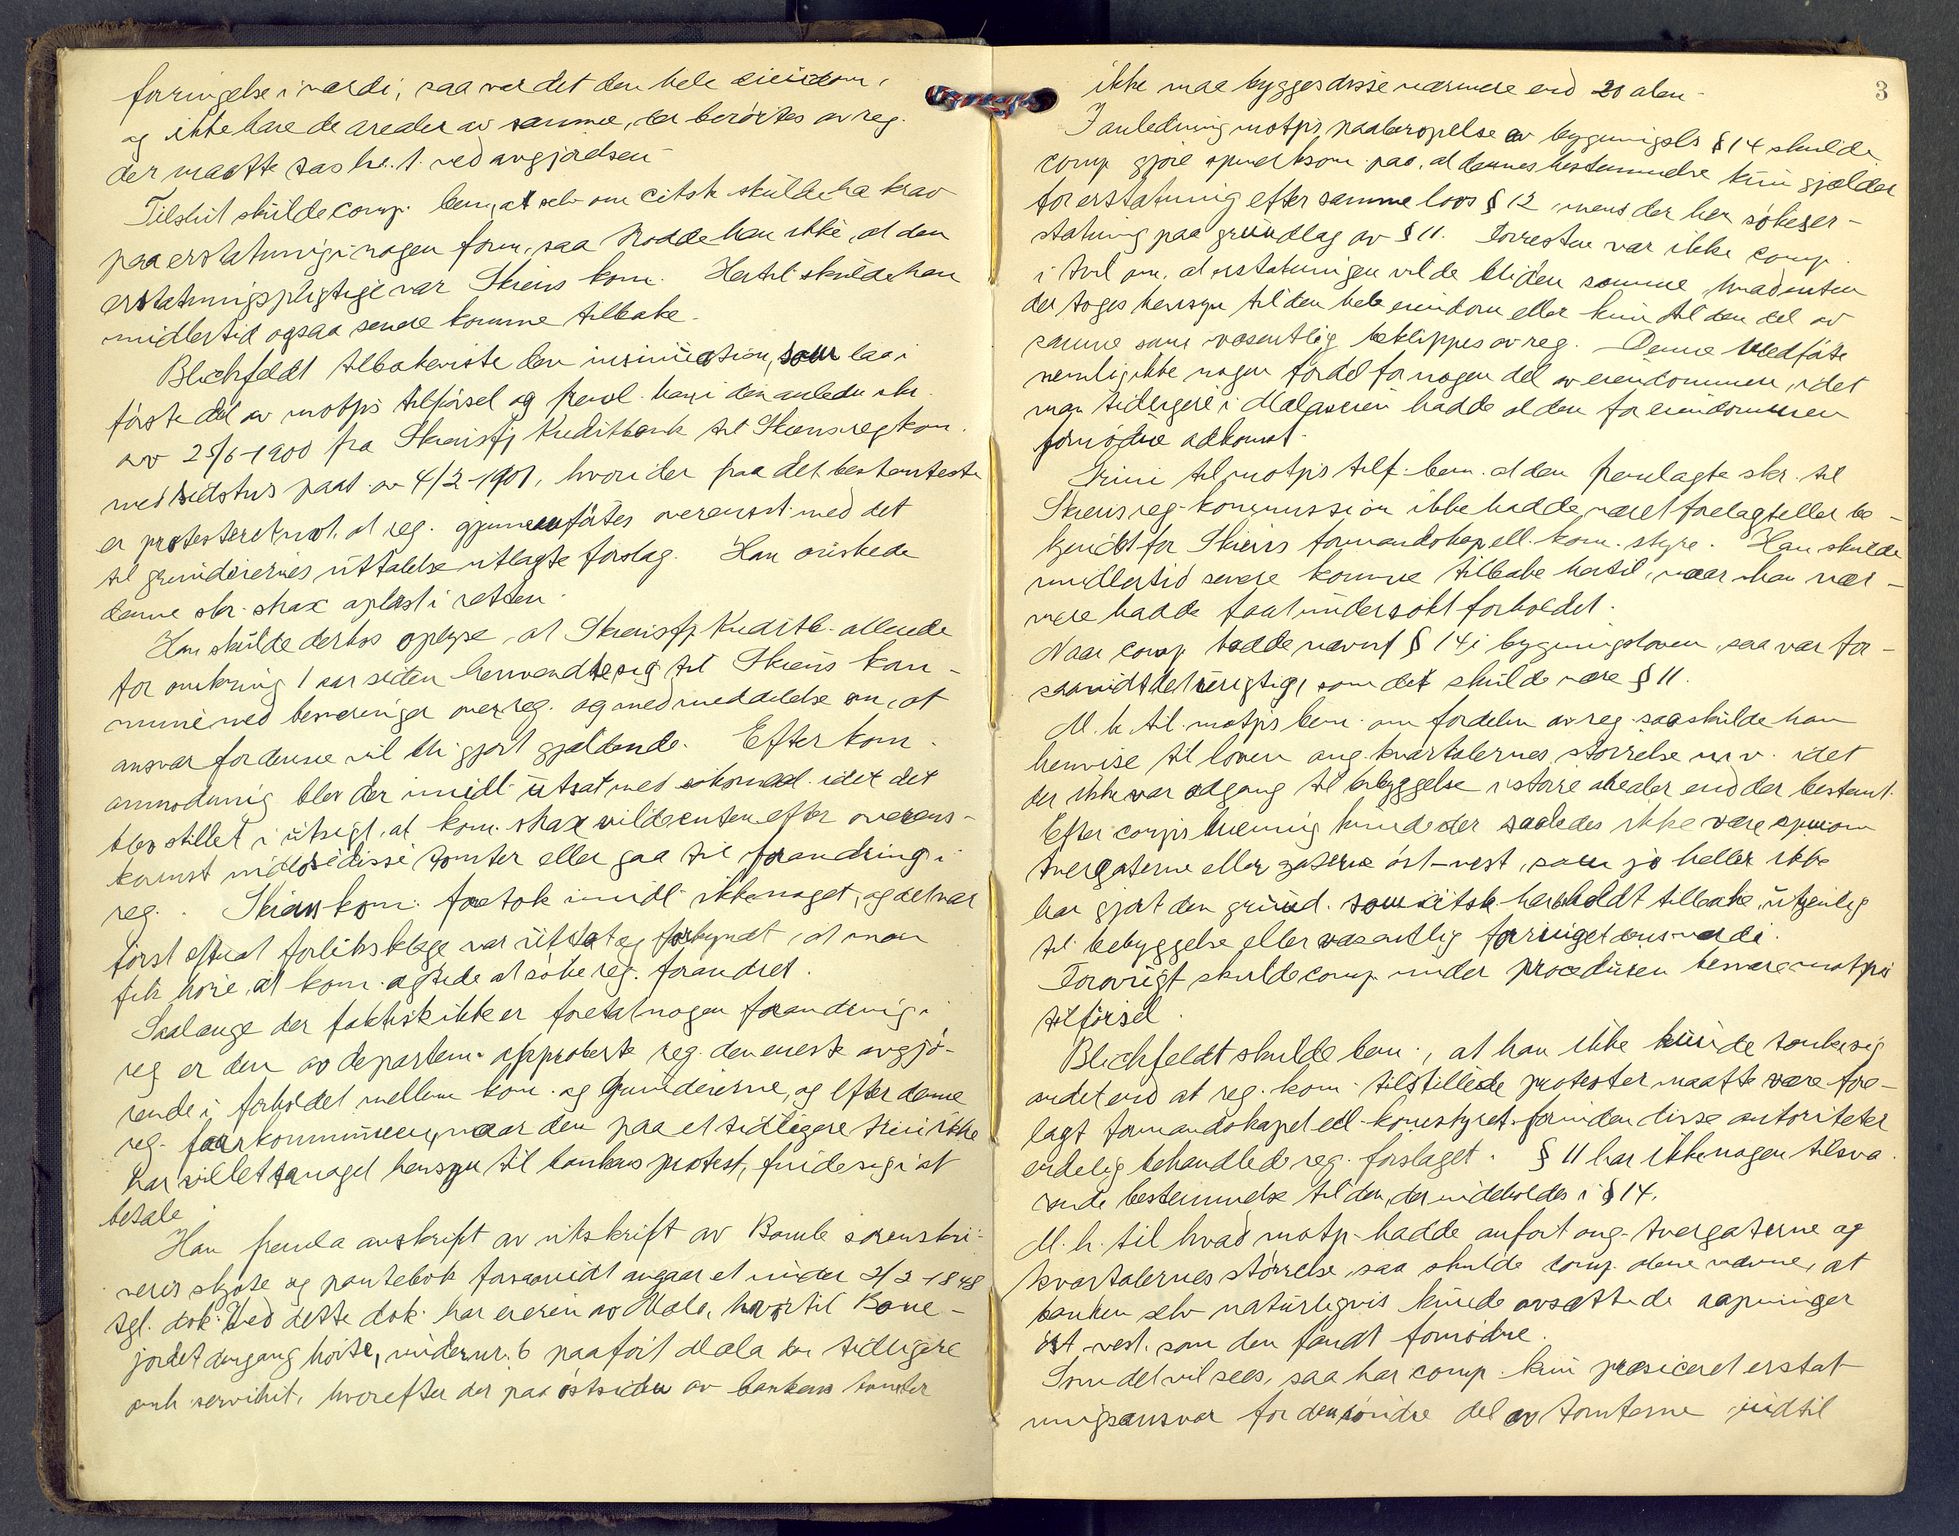 forringelse i værdi, saa var det den hele eiendom,
og ikke bare de arealer av samme, der berörtes av reg.
der maatte tas he. t. ved avgjørelsen
Tilslut skulde comp. bem, at selv om citsk skulde ha krav
paa erstatning i nogen form, saa trodde han ikke, at den
erstatningspligtige var Skiens kom. Hertil skulde han
midlertid ogsaa senere komme tilbake.
Blichfeldt tilbakeviste den insinuation, som laa i
första del av motp's tilførsel og freml. han i den anledn skr.
av 25/6-1900 fra Skiensfj Kreditbank til Skiens reg kom.
med paat. av 4/2-1901, hvori der paa det bestemteste
er protesteret mot, at reg. gjennemføres overenst. med det
til grundeiernes uttalelse utlagte forslag. Han önskede
denne skr. strax oplæst i retten.
Han skulde derhos oplyse, at Skiensfj Kreditb. allerede
for omkring 1 aar siden henvendte sig til Skiens kom-
mune med besværinger over reg. og med meddelelse om, at
ansvar for denne vil bli gjort gjældende. Efter kom.
anmodning blev der imidl. utsat med søksmaal. idet det
blev stillet i utsigt, at kom. strax vilde enten efter overens-
komst indløse disse tomter eller gaa til forandring i
reg. . Skiens kom. foretok imidl. ikke noget, og det var
först efterat forliksklage var uttat og forkyndt, at man
fik höre, at kom. agtede at söke reg. forandret.
Saalænge der faktisk ikke er foretat nogen forandring i
reg er den av departem. approberte reg. den eneste avgjö-
rende i forholdet mellem kom. og Grundeierne, og efter denne
reg. faar kommunen, naar den paa et tidligere trin ikke
har villet ta noget hensyn til bankens protest, finde sig i at
betale.
Han fremla avskrift av utskrift av Bamle sorenskri-
vers skjöte og pantebok forsaavidt angaar et under 2/2-1848
tgl. dok. Ved dette dok. har eieren av Mæla, hvortil Bøne-
jordet dengang hørte, under nr. 6 paaført Mæla den tidligere
omh servitut, hvorefter der paa östsiden av bankens tomter
3
ikke maa bygges disse nærmere end 20 alen.
I anledning motp's paaberopelse av bygningsls § 14 skulde
comp gjöre opmerksom paa, at dennes bestemmelse kun gjælder
for erstatning efter samme lovs § 12 mens der her sökes er-
statning paa grundlag av § 11. Forresten var ikke comp.
i tvil om, at erstatningen vilde bli den samme, hvadenten
der toges hensyn til den hele eiendom eller kun til den del av
samme som væsentlig beklippes av reg. Denne medføte
nemlig ikke nogen fordel for nogen del av eiendommen, idet
man tidligere i Mælagaten hadde al den for eiendommen
fornødne adkomst.
Grini til motp's tilf. bem. at den fremlagte skr. til
Skiens reg. kommission ikke hadde været forelagt eller be-
kjendt for Skiens formandskap ell. kom. styre. Han skulde
imidlertid senere komme tilbake hertil, naar han nær-
mere hadde faat undersökt forholdet.
Naar comp hadde nævnt § 14 i bygningsloven, saa var for-
saavidt det urigtig, som det skulde være § 11.
M. h. til motp's bem. om fordelen av reg. saa skulde han
henvise til loven ang. kvartalernes størrelse m.v. idet
der ikke var adgang til bebyggelse i större arealer end der bestemt.
Efter comp's mening kunde der saaledes ikke være spm om
tvergaterne eller gaterne öst-vest, som jo heller ikke
har gjort den grund. som citsk. har holdt tilbake, utjenlig
til bebyggelse eller væsentlig forringet dens værdi.
Forövrigt skulde comp. under proceduren besvare motp's
tilförsel.
Blichfeldt skulde bem., at han ikke kunde tænke sig
andet end at reg. kom. tilstillede protester maatte være fore-
lagt formandskapet ell. komstyret, forinden disse autoriteter
endelig behandlede reg. forslaget. § 11 har ikke nogen tilsva-
rende bestemmelse til den, der indeholdes i § 14.
M. h. til hvad motp. hadde anført ang. tvergaterne og
kvartalernes størrelse, saa skulde comp. alene nævne, at
banken selv naturligvis kunde avsætte de aapninger
öst-vest, som den fandt fornödne.
Som det vil sees, saa har comp. kun præciseret erstat-
ningsansvar for den söndre del av tomterne indtil